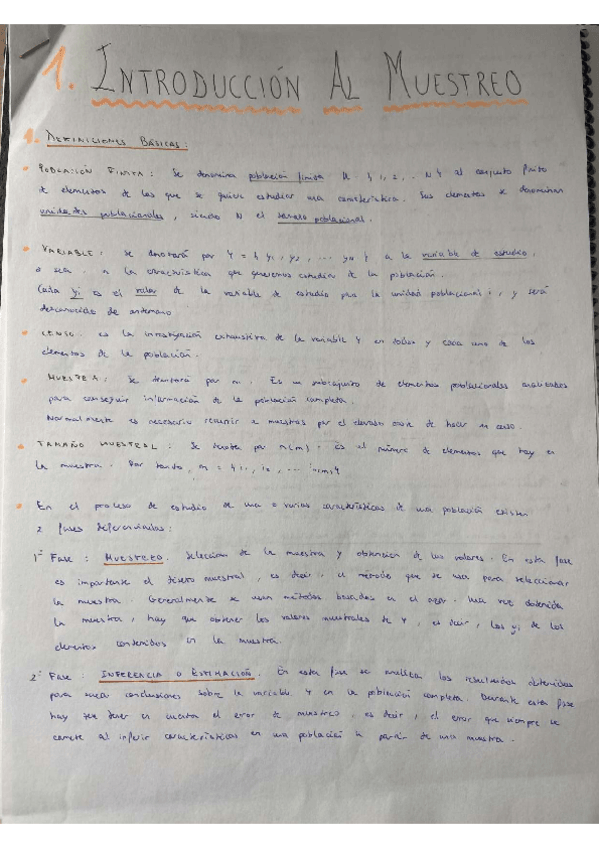 1. INTRODUCCIÓN AL MUESTREO
1. DEFINICIONES BÁSICAS:
POBLACIÓN FINITA: Se denomina población finita U = {1, 2, ... N} al conjunto finito
de elementos de los que se quiere estudiar una característica. Sus elementos se denominan
unidades poblacionales, siendo N el tamaño poblacional.
VARIABLE: Se denotará por Y = {y1, y2, ... yN} a la variable de estudio,
o sea, a la característica que queremos estudiar de la población.
Cada yi es el valor de la variable de estudio para la unidad poblacional i, y será
desconocido de antemano
CENSO: es la investigación exhaustiva de la variable Y en todos y cada uno de los
elementos de la población.
MUESTRA: Se denotará por m. Es un subconjunto de elementos poblacionales analizados
para conseguir información de la población completa.
Normalmente es necesario recurrir a muestras por el elevado coste de hacer un censo.
TAMAÑO MUESTRAL: Se denota por n(m). Es el número de elementos que hay en
la muestra. Por tanto, m = {i1, i2, ... in(m)}
En el proceso de estudio de una o varias características de una población existen
2 fases diferenciadas:
1ª Fase: MUESTREO. Selección de la muestra y obtención de los valores. En esta fase
es importante el diseño muestral, es decir, el método que se usa para seleccionar
la muestra. Generalmente se usan métodos basados en el azar. Una vez obtenida
la muestra, hay que obtener los valores muestrales de Y, es decir, los yi de los
elementos contenidos en la muestra.
2ª Fase: INFERENCIA O ESTIMACIÓN. En esta fase se analizan los resultados obtenidos
para sacar conclusiones sobre la variable Y en la población completa. Durante esta fase
hay que tener en cuenta el error de muestreo, es decir, el error que siempre se
comete al inferir características en una población a partir de una muestra.